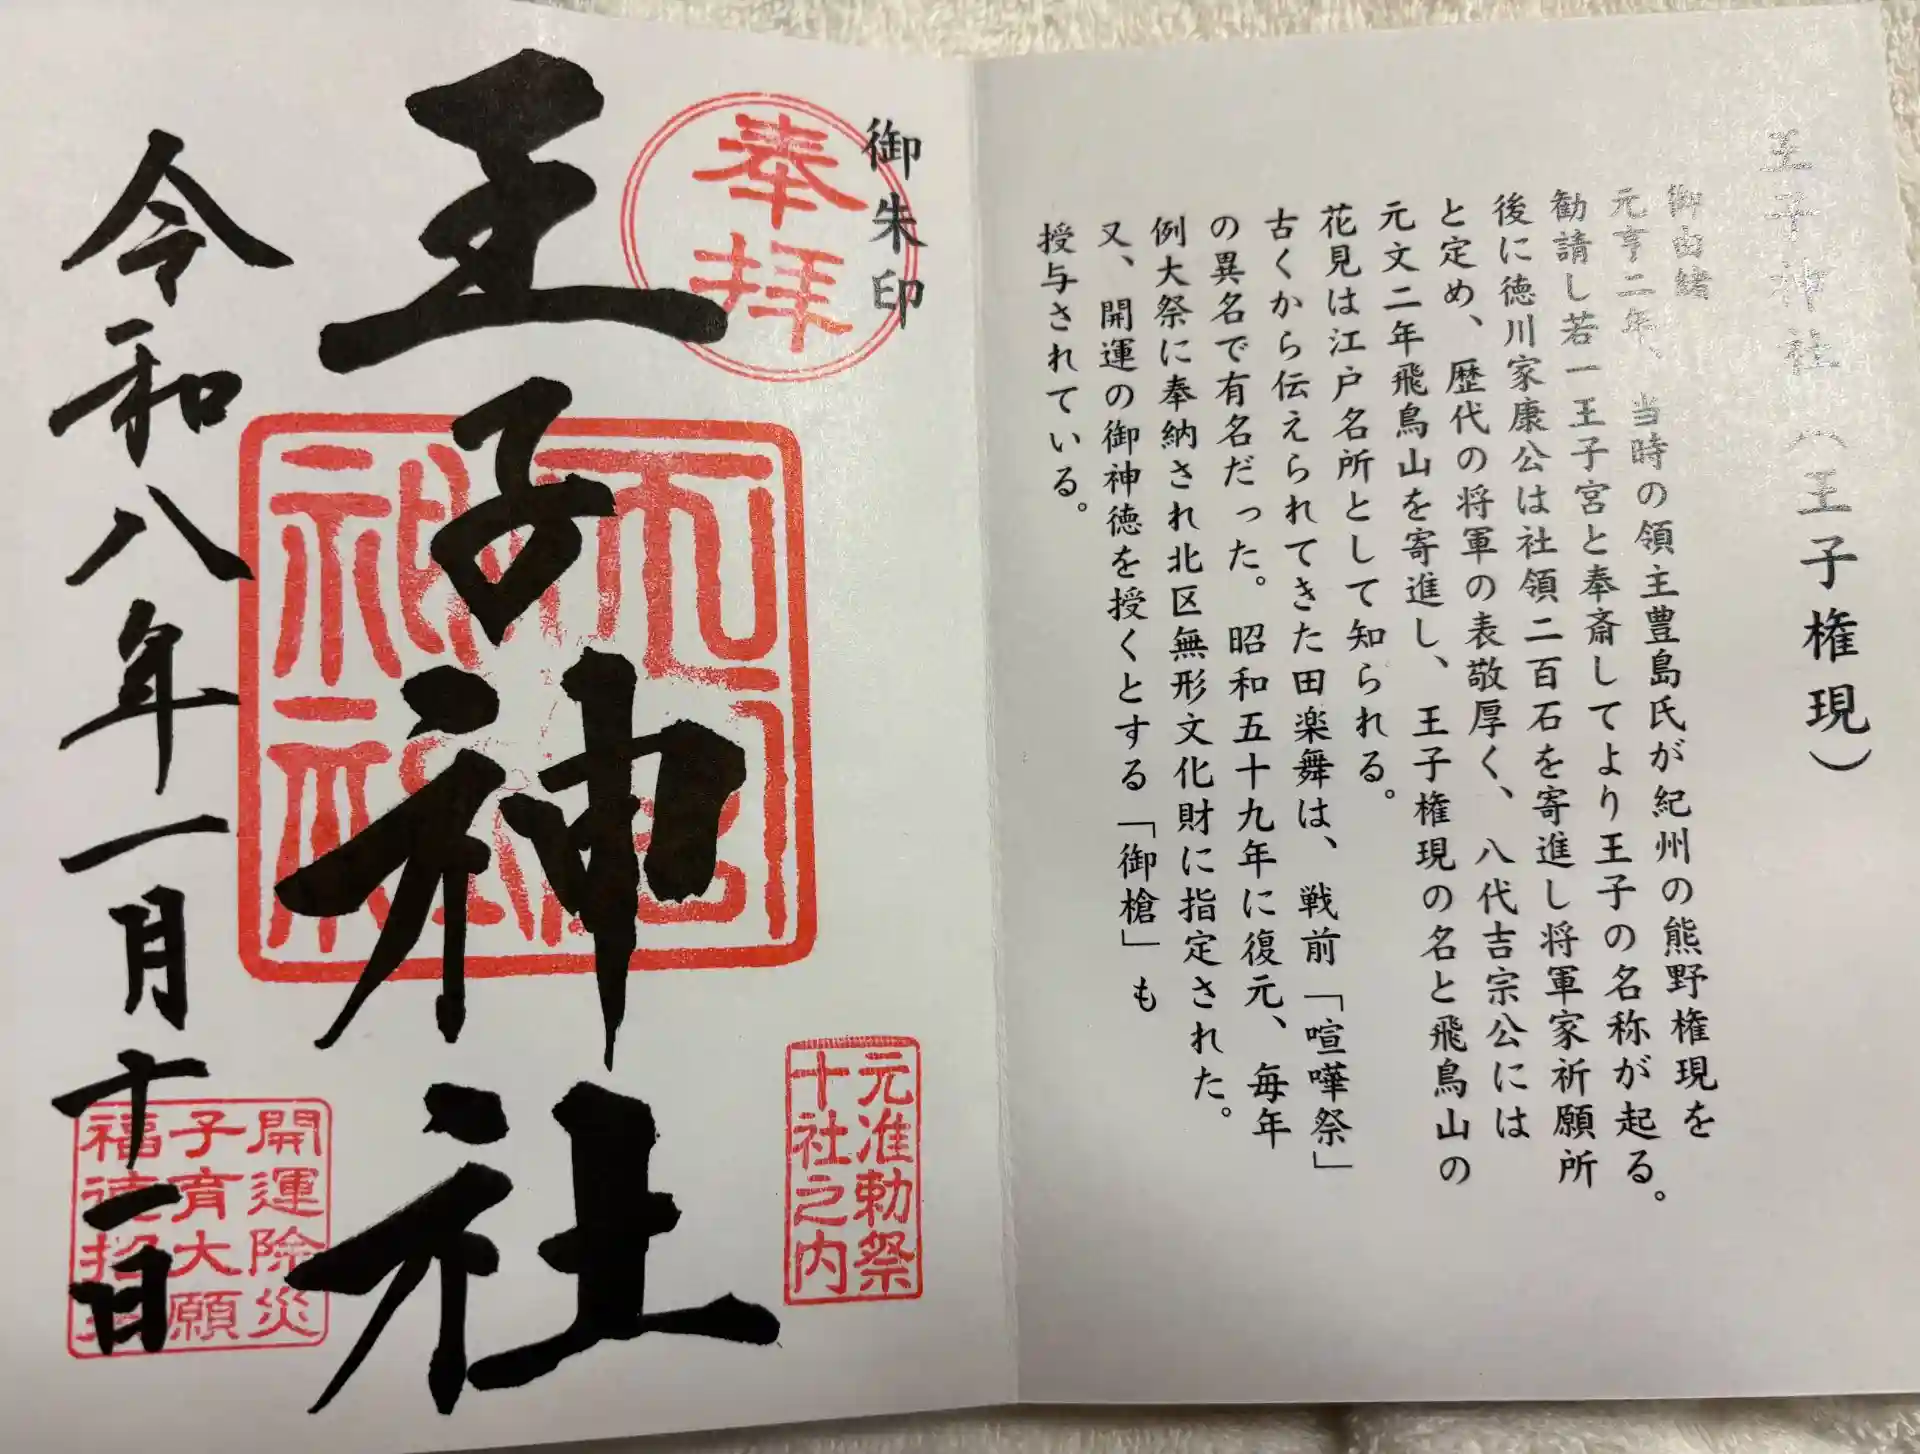 王子神社(八王子権現)
御由緒
元亨二年、当時の領主豊島氏が紀州の熊野権現を
勧請し若一王子宮と奉斎してより王子の名称が起る。
後に徳川家康公は社領二百石を寄進し将軍家祈願所
と定め、歴代の将軍の表敬厚く、八代吉宗公には
元文二年飛鳥山を寄進し、王子権現の名と飛鳥山の
花見は江戸名所として知られる。
古くから伝えられてきた田楽舞は、戦前「喧嘩祭」
の異名で有名だった。昭和五十九年に復元、毎年
例大祭に奉納され北区無形文化財に指定された。
又、開運の御神徳を授くとする「御槍」も
授与されている。
御朱印
奉拝
元准勅祭
十社之内
王子神社
王子神社
開運除災
子育大願
福徳招
令和八年一月十一日